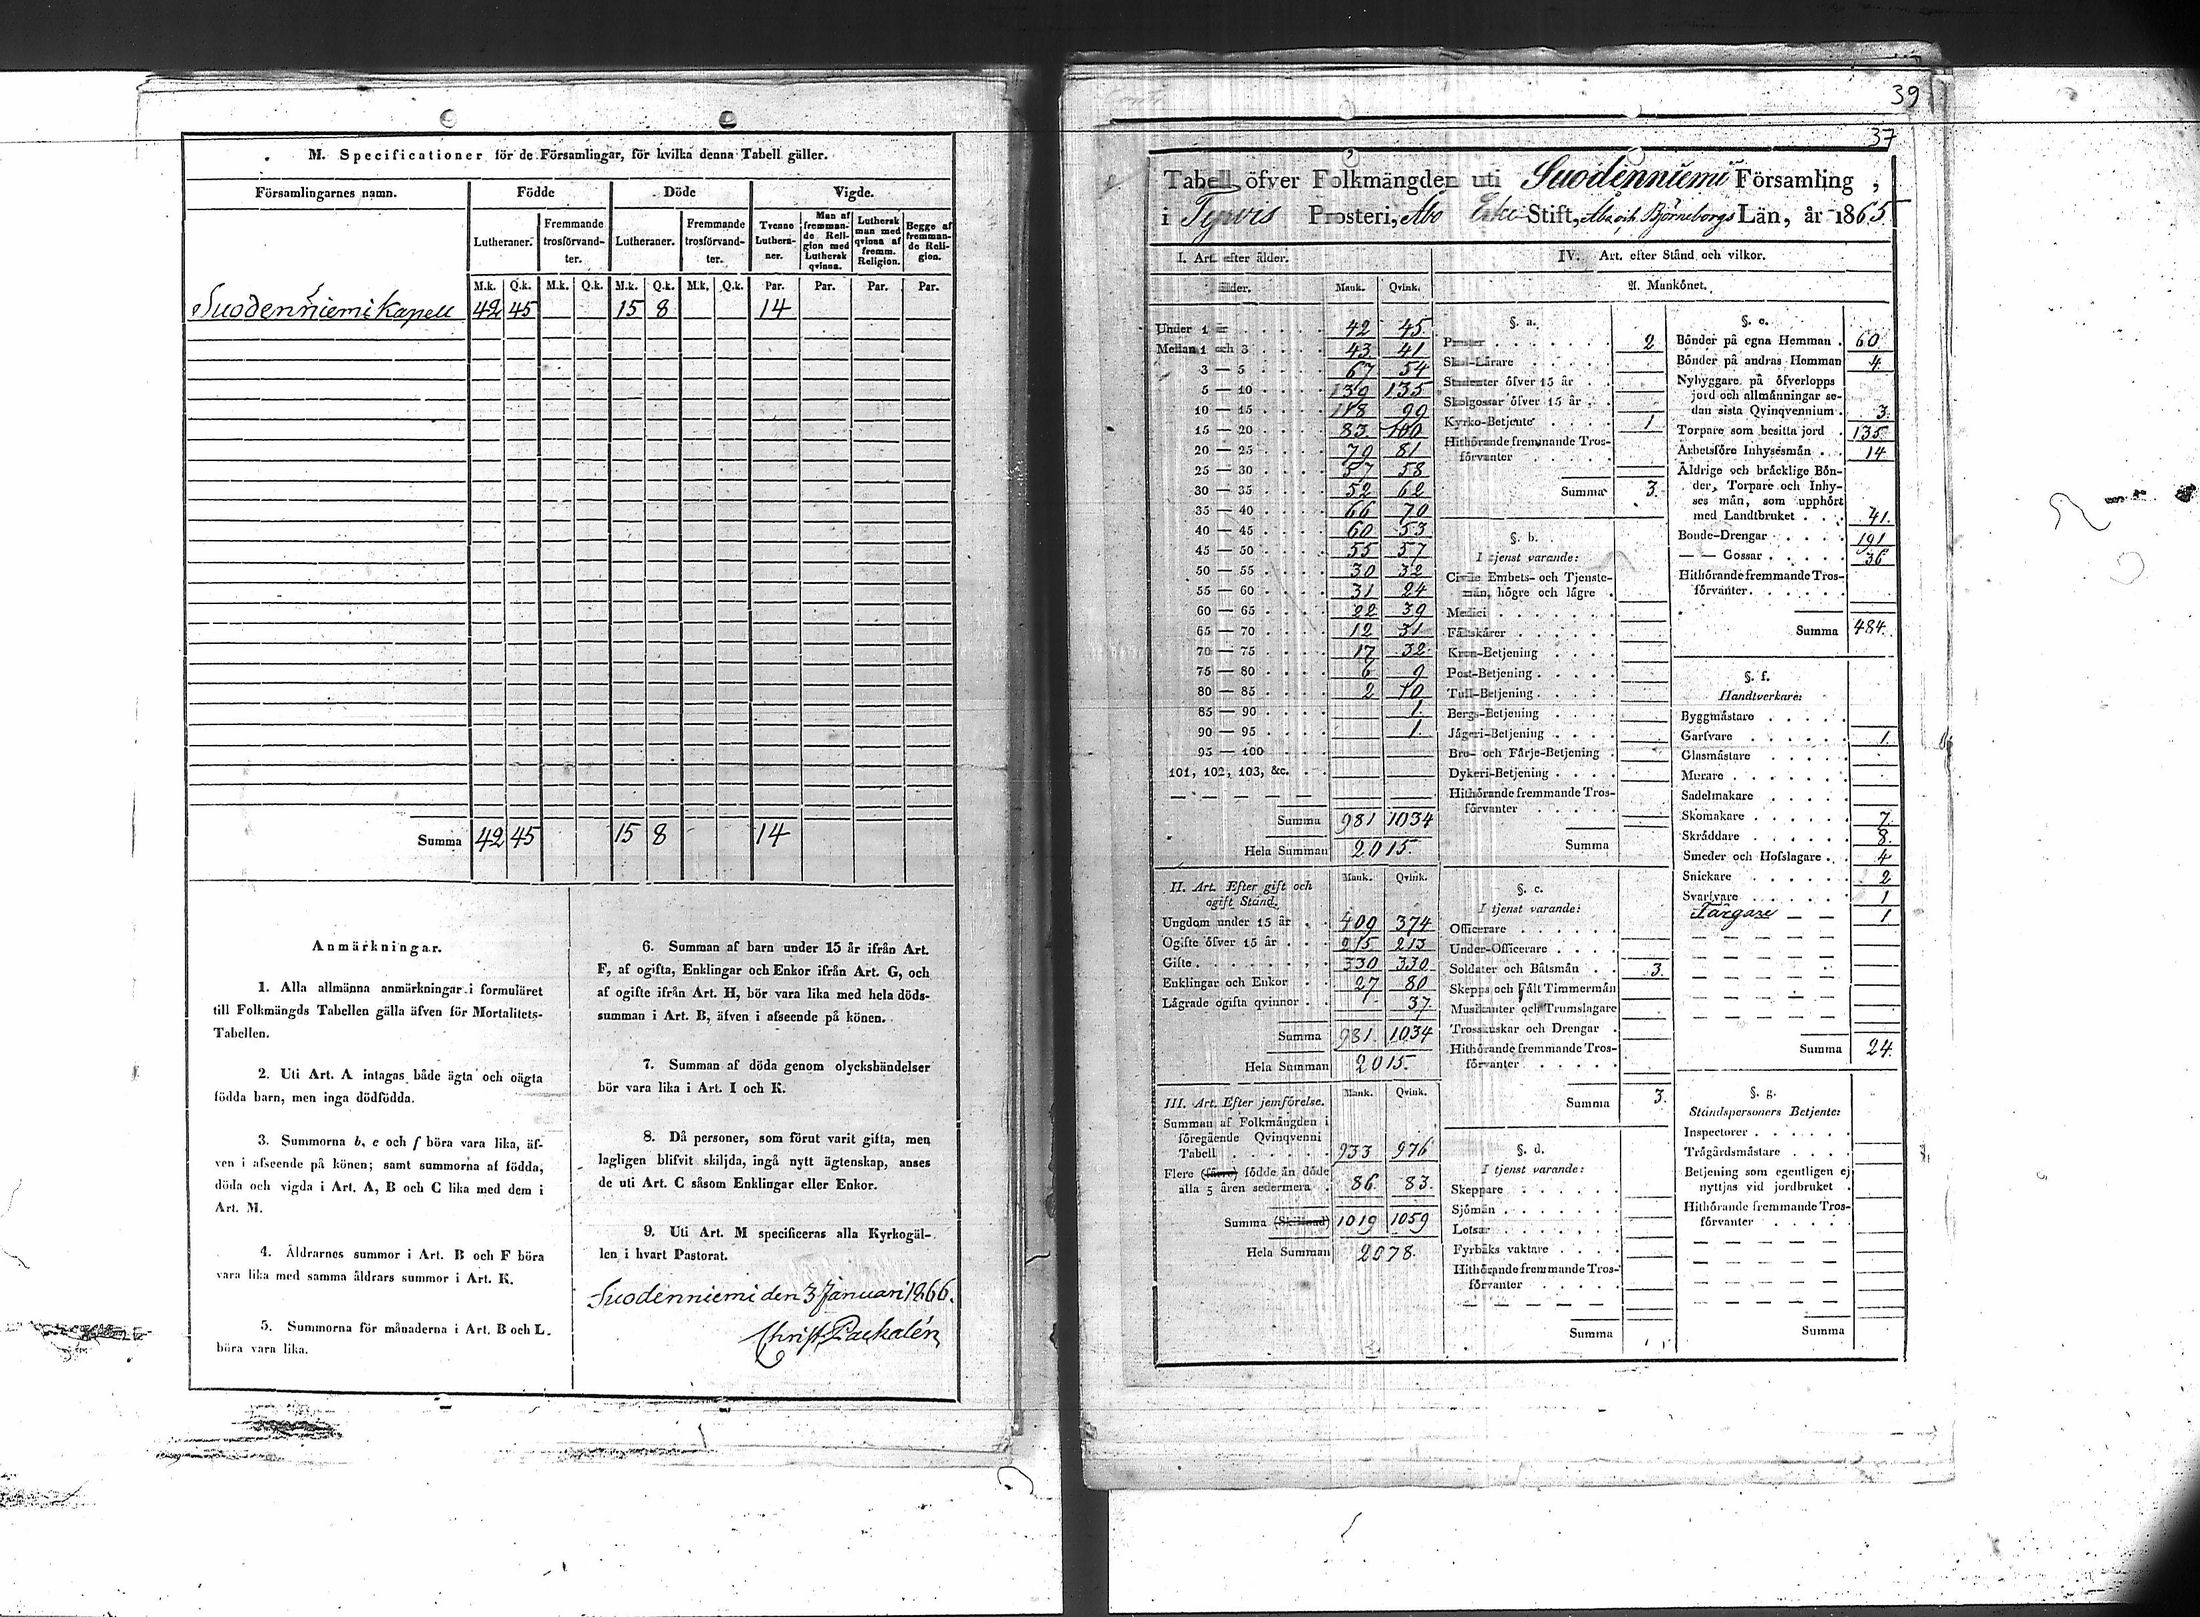 M. Specificationer för de Församlingar, för hvilka denna Tabell gäller.
Församlingarnes namn. Födde Döde Vigde.
Lutheraner. Fremmande trosförvandter. Lutheraner. Fremmande trosförvandter. Tvenne Lutheraner. Man af fremmande Religion med Luthersk qvinna. Luthersk man med qvinna af fremm. Religion. Begge af fremmande Religion.
M.k. Q.k. M.k. Q.k. M.k. Q.k. M.k. Q.k. Par. Par. Par. Par.
Suodenniemi Kapell 42 45 15 8 14
Summa 42 45 15 8 14
Anmärkningar.
1. Alla allmänna anmärkningar i formuläret
till Folkmängds Tabellen gälla äfven för Mortalitets-
Tabellen.
2. Uti Art. A intagas både ägta och oägta
födda barn, men inga dödfödda.
3. Summorna b, e och f böra vara lika, äf-
ven i afseende på könen; samt summorna af födda,
döda och vigda i Art. A, B och C lika med dem i
Art. M.
4. Åldrarnes summor i Art. B och F böra
vara lika med samma åldrars summor i Art. K.
5. Summorna för månaderna i Art. B och L.
böra vara lika.
6. Summan af barn under 15 år ifrån Art.
F, af ogifta, Enklingar och Enkor ifrån Art. G, och
af ogifte ifrån Art. H, bör vara lika med hela döds-
summan i Art. B, äfven i afseende på könen.
7. Summan af döda genom olyckshändelser
bör vara lika i Art. I och K.
8. Då personer, som förut varit gifta, men
lagligen blifvit skiljda, ingå nytt ägtenskap, anses
de uti Art. C såsom Enklingar eller Enkor.
9. Uti Art. M specificeras alla Kyrkogäl-
len i hvart Pastorat.
Suodenniemi den 3 Januari 1866.
Christ. Packalén
39
37
Tabell öfver Folkmängden uti Suodenniemi Församling,
i Tyrvis Prosteri, Åbo Erke Stift, Åbo och Björneborgs Län, år 1865.
I. Art. efter ålder.
Ålder. Mank. Qvink.
Under 1 år 42 45
Mellan 1 och 3 43 41
3 — 5 67 54
5 — 10 139 135
10 — 15 118 99
15 — 20 83 100
20 — 25 79 81
25 — 30 57 58
30 — 35 52 62
35 — 40 66 70
40 — 45 60 53
45 — 50 55 57
50 — 55 30 32
55 — 60 31 24
60 — 65 22 39
65 — 70 12 31
70 — 75 17 32
75 — 80 6 9
80 — 85 2 10
85 — 90 1.
90 — 95 1.
95 — 100
101, 102, 103, &c.
Summa 981 1034
Hela Summan 2015.
II. Art. Efter gift och
ogift Stånd.
Mank. Qvink.
Ungdom under 15 år 409 374
Ogifte öfver 15 år 215 213
Gifte 330 330
Enklingar och Enkor 27 80
Lägrade ogifta qvinnor 37
Summa 981. 1034
Hela Summan 2015.
III. Art. Efter jemförelse. Mank. Qvink.
Summan af Folkmängden i
föregående Qvinqvenni
Tabell 933 976
Flere (färre) födde än döde
alla 5 åren sedermera 86. 83.
Summa (Skillnad) 1019 1059
Hela Summan 2078.
IV. Art. efter Stånd och vilkor.
A. Mankönet.
§. a.
Prester 2
Skol-Lärare
Studenter öfver 15 år
Skolgossar öfver 15 år
Kyrko-Betjente 1
Hithörande fremmande Tros-
förvanter
Summa 3.
§. b.
I tjenst varande:
Civile Embets- och Tjenste-
män, högre och lägre
Medici
Fältskärer
Kron-Betjening
Post-Betjening
Tull-Betjening
Bergs-Betjening
Jägeri-Betjening
Bro- och Färje-Betjening
Dykeri-Betjening
Hithörande fremmande Tros-
förvanter
Summa
§. c.
I tjenst varande:
Officerare
Under-Officerare
Soldater och Båtsmän 3.
Skepps och Fält Timmermän
Musikanter och Trumslagare
Trosskuskar och Drengar
Hithörande fremmande Tros-
förvanter
Summa 3.
§. d.
I tjenst varande:
Skeppare
Sjömän
Lotsar
Fyrbåks vaktare
Hithörande fremmande Tros-
förvanter
Summa
§. e.
Bönder på egna Hemman 60
Bönder på andras Hemman 4.
Nybyggare på öfverlopps
jord och allmänningar se-
dan sista Qvinqvennium 3.
Torpare som besitta jord 135
Arbetsföre Inhysesmän 14
Åldrige och bräcklige Bön-
der, Torpare och Inhy-
ses män, som upphört
med Landtbruket 41.
Bonde-Drengar 191
— — Gossar 36
Hithörande fremmande Tros-
förvanter
Summa 484.
§. f.
Handtverkare:
Byggmästare
Garfvare 1.
Glasmästare
Murare
Sadelmakare
Skomakare 7.
Skräddare 8.
Smeder och Hofslagare 4
Snickare 2
Svarfvare 1
Färgare 1
Summa 24.
§. g.
Ståndspersoners Betjente:
Inspectorer
Trägårdsmästare
Betjening som egentligen ej
nyttjas vid jordbruket
Hithörande fremmande Tros-
förvanter
Summa